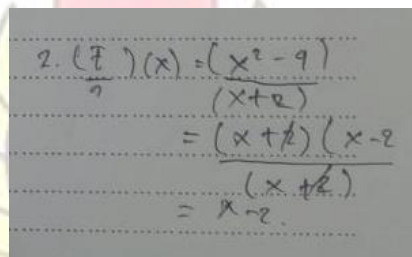 2. (f/g)(x) = (x² - 9)/(x+2)
= (x+2)(x-2/(x+2)
= x-2.